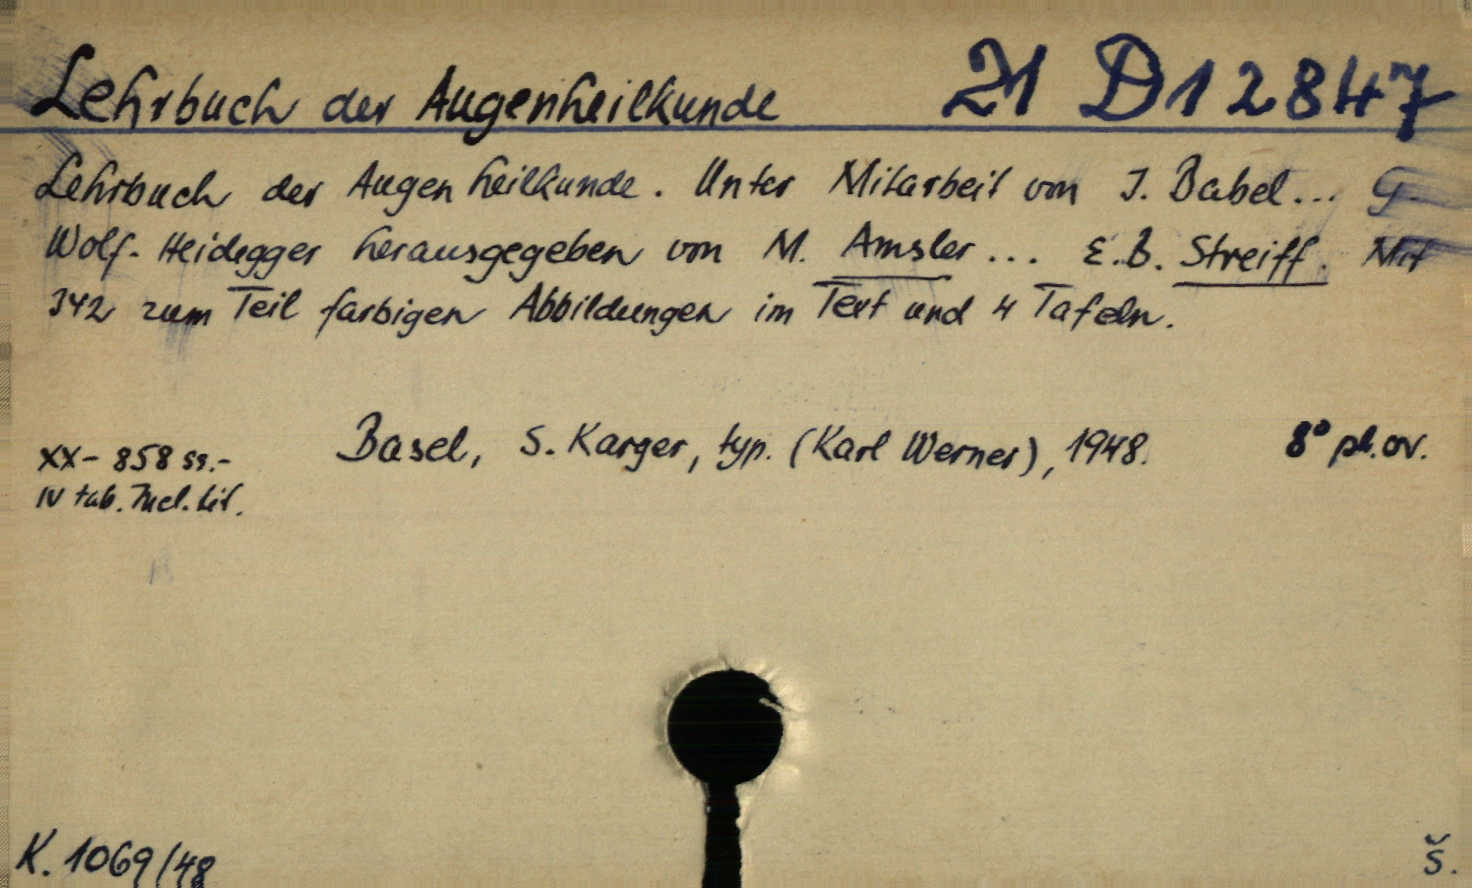 Lehrbuch der Augenheilkunde 21 D 12847
Lehrbuch der Augenheilkunde. Unter Mitarbeit von J. Babel... G.
Wolf-Heidegger herausgegeben von M. Amsler... E.B. Streiff. Mit
342 zum Teil farbigen Abbildungen im Text und 4 Tafeln.
Basel, S. Karger, typ. (Karl Werner), 1948. 8° pl. ov.
XX-858 ss.-
IV tab. Incl. lit.
K. 1069/48 Š.